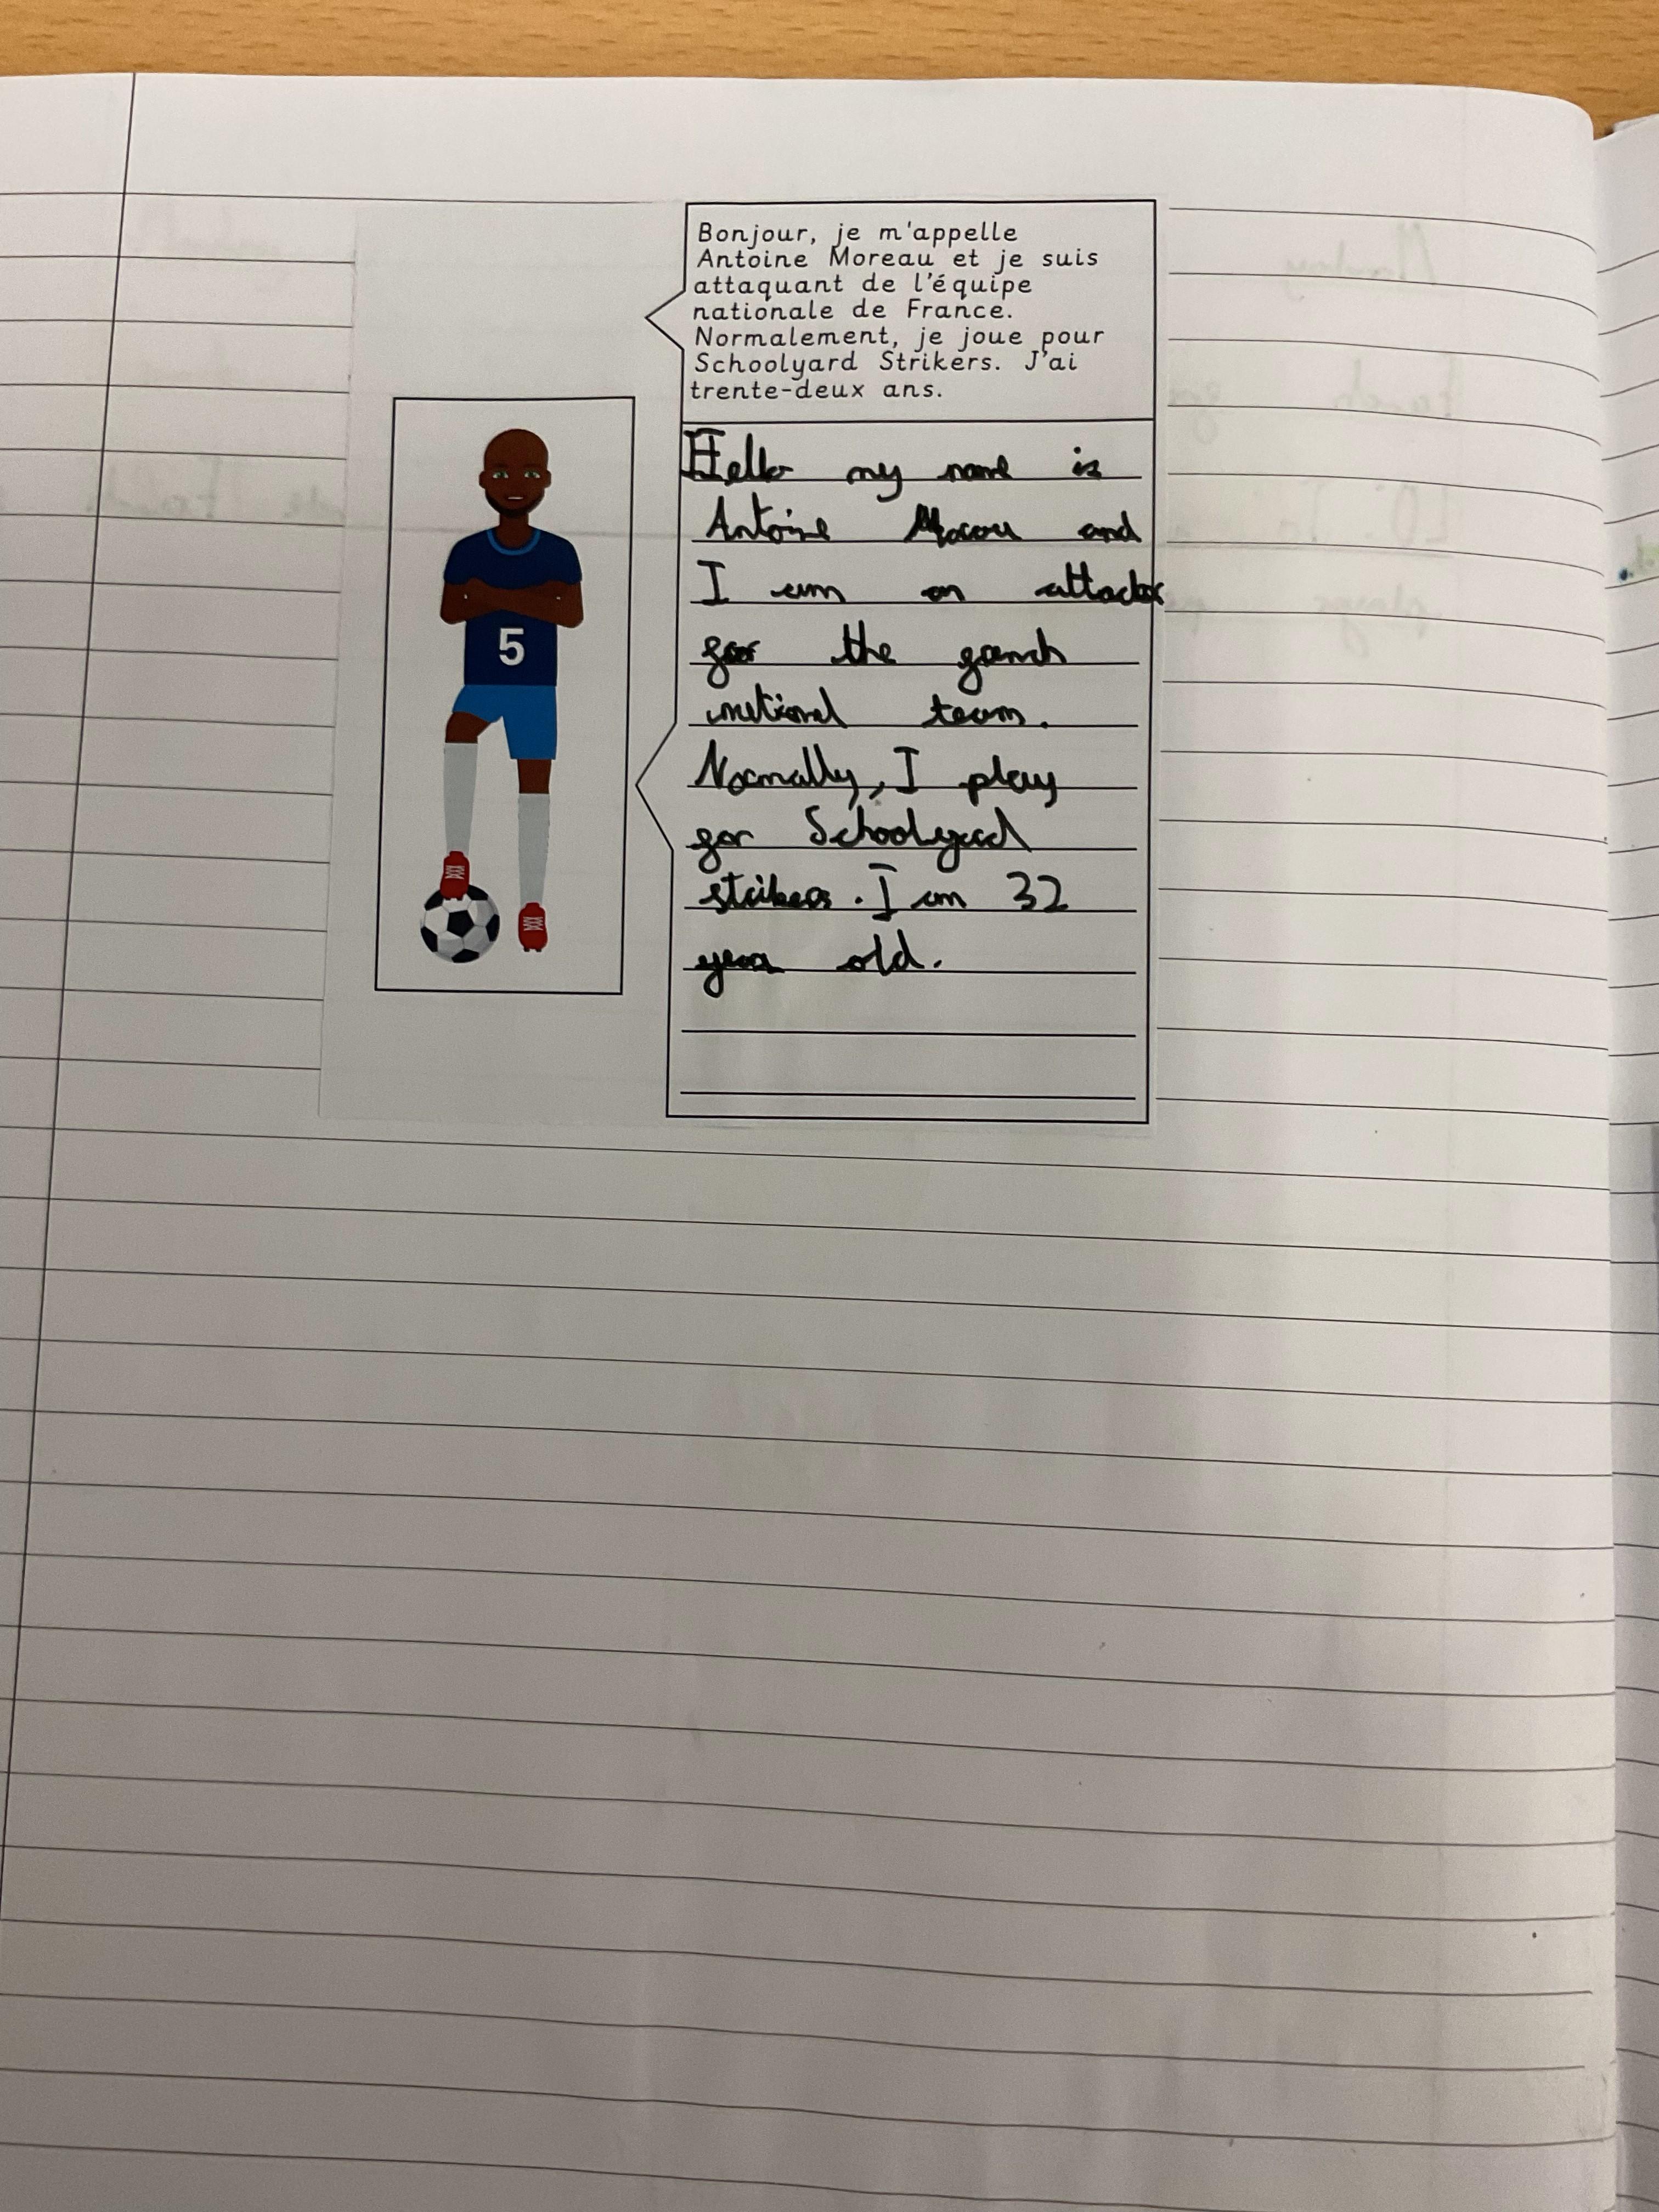 Bonjour, je m'appelle
Antoine Moreau et je suis
attaquant de l'équipe
nationale de France.
Normalement, je joue pour
Schoolyard Strikers. J'ai
trente-deux ans.
5
Hello my name is
Antoine and
I am an attacker
for the french
national team.
Normally, I play
for Schoolyard
strikers. I am 32
years old.